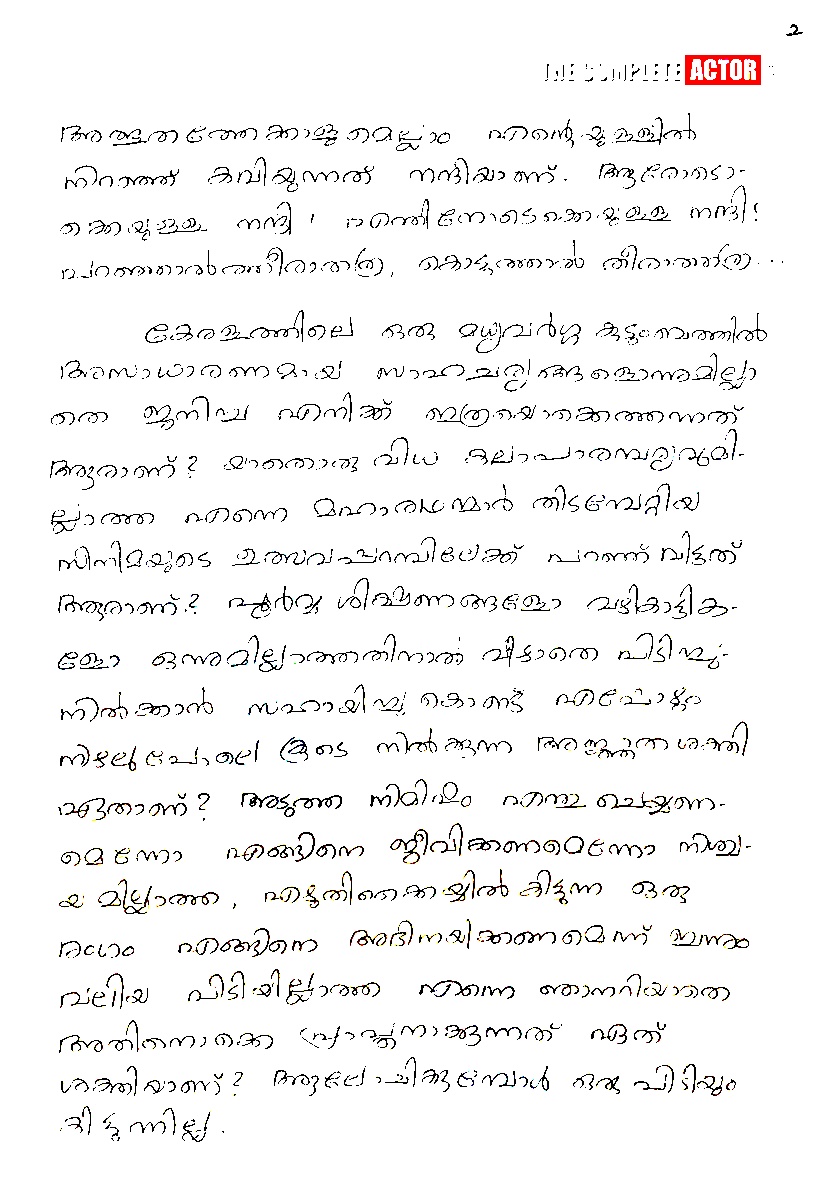 2
THE COMPLETE ACTOR
അത്ഭുതത്തേക്കാളുമെല്ലാം എന്റെയുള്ളിൽ
നിറഞ്ഞ് കവിയുന്നത് നന്ദിയാണ്. ആരോടൊ-
ക്കെയുള്ള നന്ദി! എന്തിനോടൊക്കെയുള്ള നന്ദി!
പറഞ്ഞാൽത്തീരാത്തത്ര, കൊടുത്താൽ തീരാത്തത്ര...
കേരളത്തിലെ ഒരു മധ്യവർഗ്ഗ കുടുംബത്തിൽ
അസാധാരണമായ സാഹചര്യങ്ങളൊന്നുമില്ലാ
തെ ജനിച്ച എനിക്ക് ഇത്രയൊക്കെത്തന്നത്
ആരാണ്? യാതൊരു വിധ കലാപാരമ്പര്യവുമി-
ല്ലാത്ത എന്നെ മഹാരഥന്മാർ തിടമ്പേറ്റിയ
സിനിമയുടെ ഉത്സവപ്പറമ്പിലേക്ക് പറഞ്ഞ് വിട്ടത്
ആരാണ്? പൂർവ്വ ശിക്ഷണങ്ങളോ വഴികാട്ടിക-
ളോ ഒന്നുമില്ലാത്തതിനാൽ വീഴാതെ പിടിച്ചു-
നിൽക്കാൻ സഹായിച്ചു കൊണ്ട് എപ്പോഴും
നിഴലുപോലെ കൂടെ നിൽക്കുന്ന അജ്ഞാത ശക്തി
ഏതാണ്? അടുത്ത നിമിഷം എന്ത് ചെയ്യണ-
മെന്നോ എങ്ങിനെ ജീവിക്കണമെന്നോ നിശ്ച-
യമില്ലാത്ത, എഴുതിതൈക്കയ്യിൽ കിട്ടുന്ന ഒരു
രംഗം എങ്ങിനെ അഭിനയിക്കണമെന്ന് ഇന്നും
വലിയ പിടിയില്ലാത്ത എന്നെ ഞാനറിയാതെ
അതിനൊക്കെ പ്രാപ്തനാക്കുന്നത് ഏത്
ശക്തിയാണ്? ആലോചിക്കുമ്പോൾ ഒരു പിടിയും
കിട്ടുന്നില്ല.